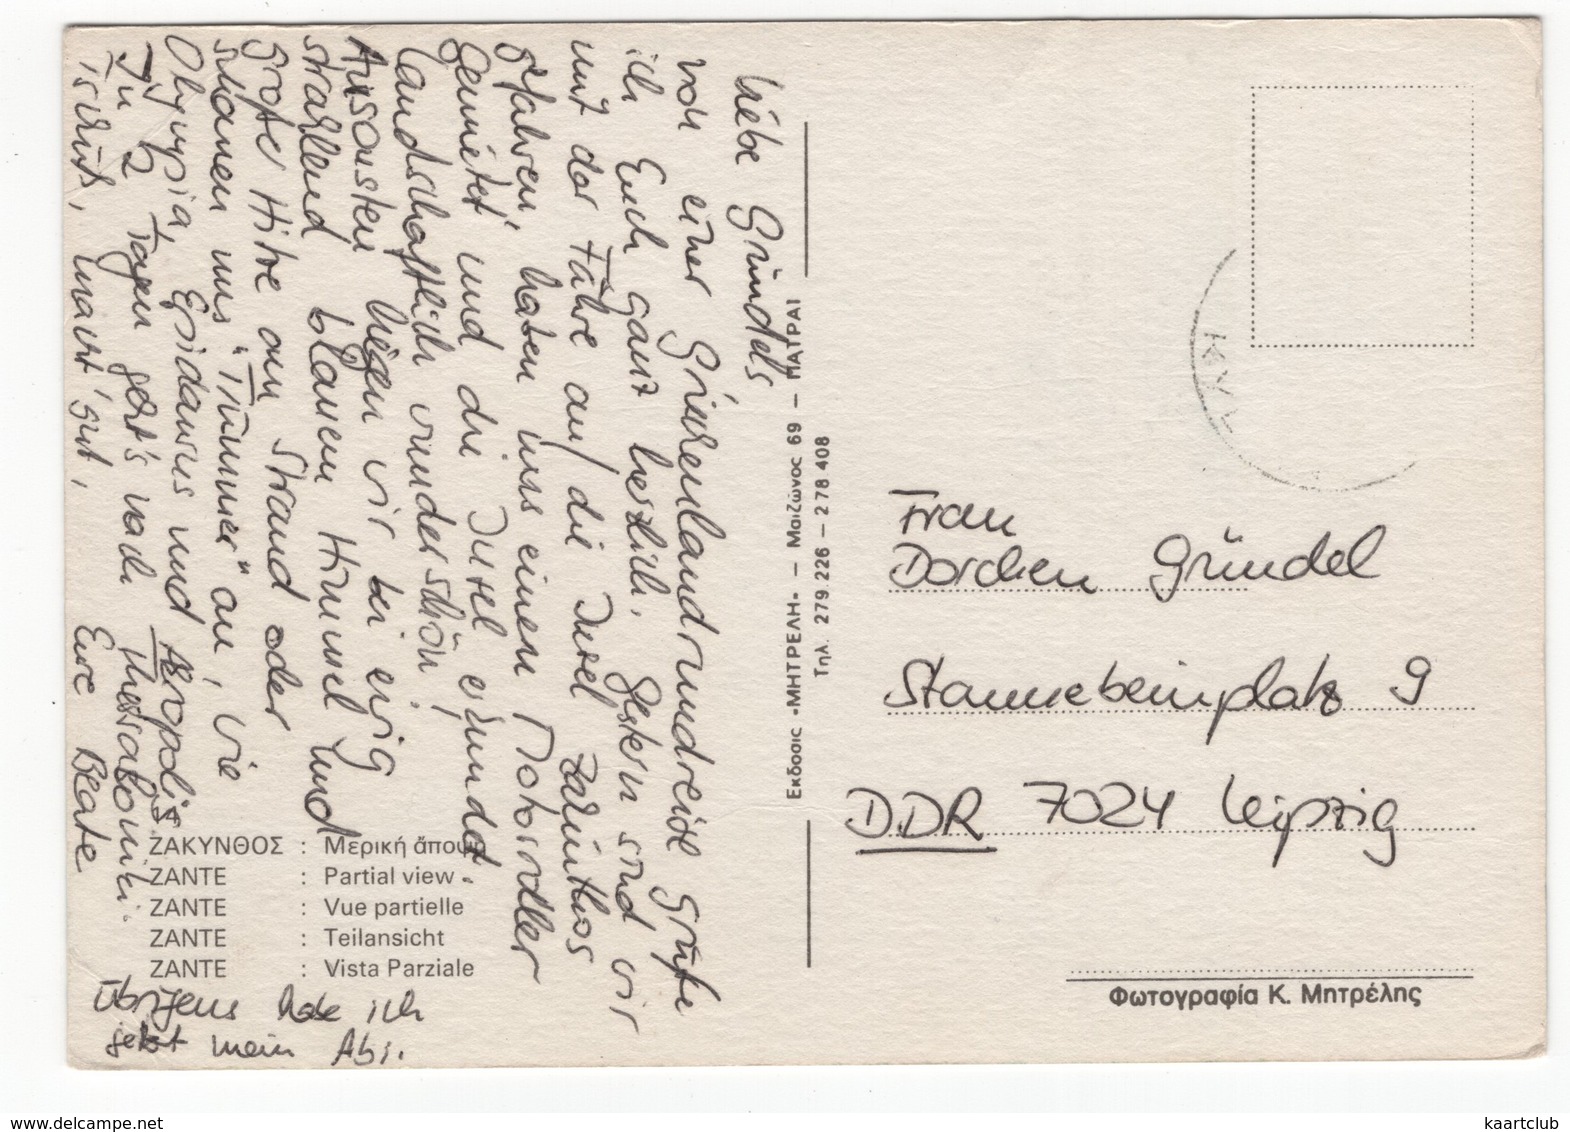 Liebe Gründels,
von einer Griechenlandrundreise grüße
ich Euch ganz herzlich. Gestern sind wir
mit der Fähre auf die Insel Zakinthos
gefahren, haben uns einen Motorroller
gemietet und die Insel erkundet.
Landschaftlich wunderschön!
Ansonsten liegen wir bei ewig
strahlend blauem Himmel und
großer Hitze am Strand oder
schauen uns "Trümmer" an, wie
Olympia, Epidaurus und Akropolis
In 2 Tagen geht's nach Thessaloniki.
Tschüß, macht's gut,
Eure Beate
Übrigens habe ich
jetzt mein Abi.
ΖΑΚΥΝΘΟΣ : Μερική άποψη
ZANTE : Partial view
ZANTE : Vue partielle
ZANTE : Teilansicht
ZANTE : Vista Parziale
Εκδοσις «ΜΗΤΡΕΛΗ» – Μαιζώνος 69 – ΠΑΤΡΑΙ
Τηλ. 279.226 – 278 408
Frau
Dorchen Gründel
Stannebeinplatz 9
DDR 7024 Leipzig
Φωτογραφία Κ. Μητρέλης
www.delcampe.net
kaartclub